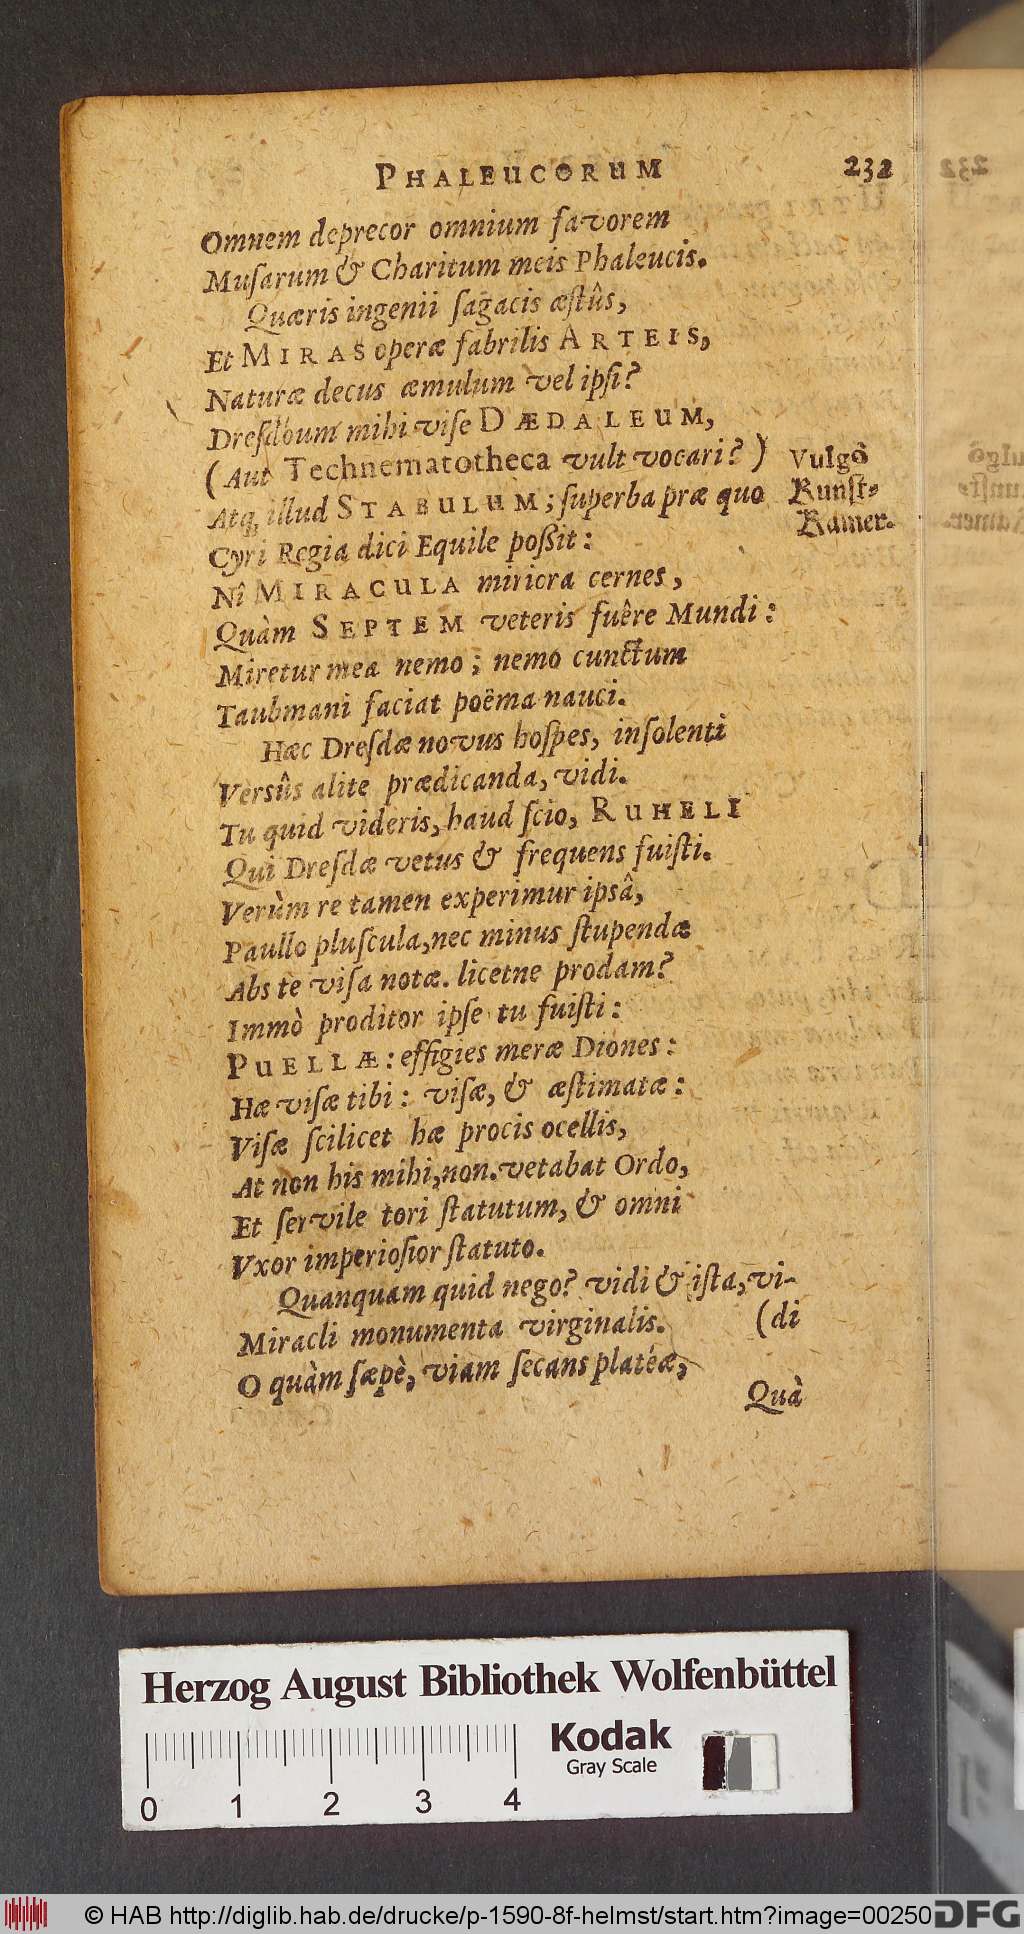 PHALEUCORUM 232
Omnem deprecor omnium favorem
Muſarum & Charitum meis Phaleucis.
Quæris ingenii ſagacis æſtûs,
Et MIRAS operæ fabrilis ARTEIS,
Naturæ decus æmulum vel ipſi?
Dreſdæum mihi viſe DÆDALEUM,
(Aut Technematotheca vult vocari?)
Vulgò
Kunſt-
Kamer.
Atq; illud STABULUM; ſuperba præ quo
Cyri Regia dici Equile poßit:
Nî MIRACULA miriora cernes,
Quàm SEPTEM veteris fuêre Mundi:
Miretur mea nemo; nemo cunctum
Taubmani faciat poëma nauci.
Hæc Dreſdæ novus hoſpes, inſolenti
Verſûs alite prædicanda, vidi.
Tu quid videris, haud ſcio, RUHELI
Qui Dreſdæ vetus & frequens fuiſti.
Verùm re tamen experimur ipsâ,
Paullo pluſcula, nec minus ſtupendæ
Abs te viſa notæ. licetne prodam?
Immò proditor ipſe tu fuiſti:
PUELLÆ: effigies meræ Diones:
Hæ viſæ tibi: viſæ, & æſtimatæ:
Viſæ ſcilicet hæ procis ocellis,
At non his mihi, non. vetabat Ordo,
Et ſervile tori ſtatutum, & omni
Vxor imperioſior ſtatuto.
Quanquam quid nego? vidi & iſta, vi-
Miracli monumenta virginalis. (di
O quàm ſæpè, viam ſecans platéæ,
Quà
Herzog August Bibliothek Wolfenbüttel
Kodak
Gray Scale
0 1 2 3 4
© HAB http://diglib.hab.de/drucke/p-1590-8f-helmst/start.htm?image=00250 DFG